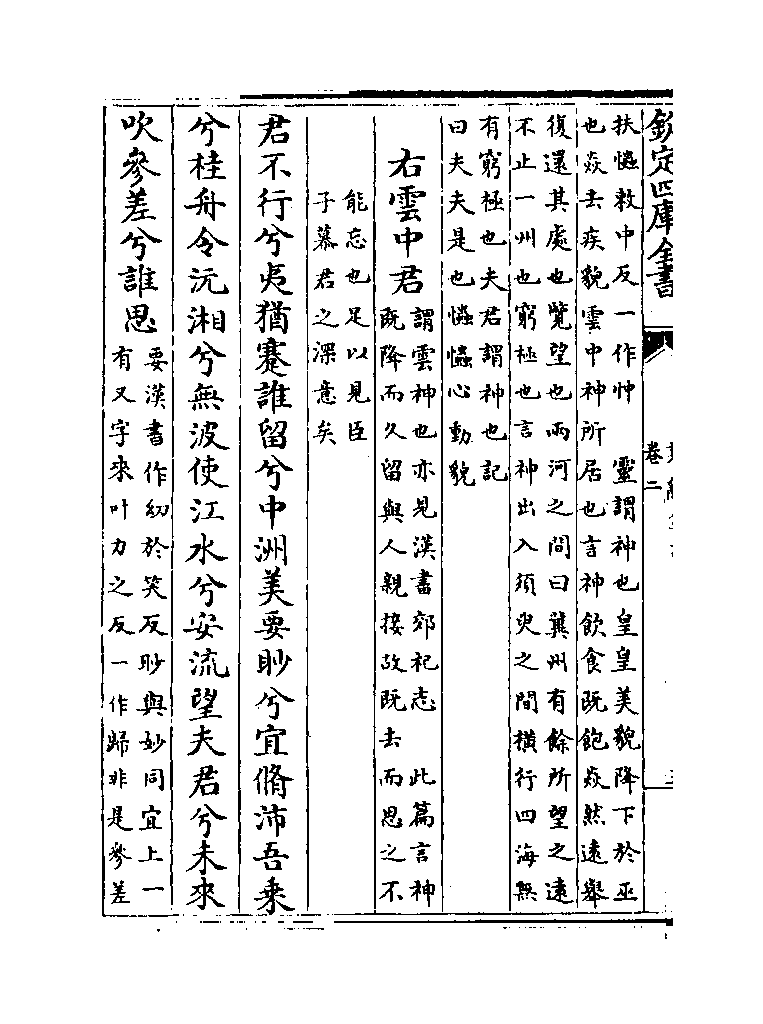 欽定四庫全書
卷二
扶懺敕中反一作忡　靈謂神也皇皇美貌降下於巫
也焱去疾貌雲中神所居也言神飲食既飽焱然遠舉
復還其處也覽望也兩河之間曰冀州有餘所望之遠
不止一州也窮極也言神出入須臾之間橫行四海無
有窮極也夫君謂神也記
曰夫夫是也㣭㣭心動貌
右雲中君
謂雲神也亦見漢書郊祀志　此篇言神
既降而久留與人親接故既去而思之不
能忘也足以見臣
子慕君之深意矣
君不行兮夷猶蹇誰留兮中洲美要眇兮宜脩沛吾乘
兮桂舟令沅湘兮無波使江水兮安流望夫君兮未來
吹參差兮誰思
要漢書作幼於笑反眇與妙同宜上一
有又字來叶力之反一作歸非是參差